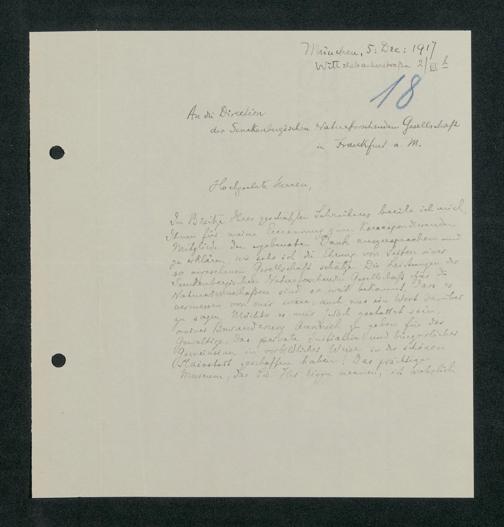 München, 5. Dec: 1917
Wittelsbacherstraße 2/III
18
An die Direction
der Senckenbergischen Naturforschenden Gesellschaft
in Frankfurt a. M.
Hochgeehrte Herren,
Im Besitze Ihres geschätzten Schreibens beeile ich mich,
Ihnen für meine Ernennung zum Korrespondierenden
Mitgliede den ergebensten Dank auszusprechen und
zu erklären, wie sehr ich die Ehrung von Seiten einer
so angesehenen Gesellschaft schätze. Die Leistungen der
Senckenbergischen Naturforschenden Gesellschaft für die
Naturwissenschaften sind so bekannt, dass es
vermessen von mir wäre, auch nur ein Wort darüber
zu sagen. Möchte es mir jedoch gestattet sein,
meiner Bewunderung Ausdruck zu geben für das
Gewaltige, das private und bürgerlicher
Gemeinsinn in vorbildlicher Weise in der schönen
Mainstadt geschaffen haben! Das prächtige
Museum, das Sie Ihr Eigen nennen, ist wahrlich